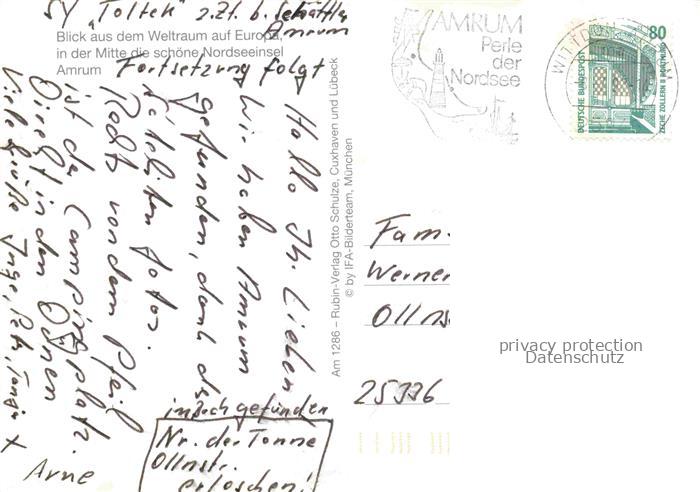 SY "Toltek" z.Zt. b. Schüttler
Amrum
Blick aus dem Weltraum auf Europa,
in der Mitte die schöne Nordseeinsel
Amrum
Fortsetzung folgt
Hallo Ihr Lieben
Wir haben Amrum
gefunden, dank des
Satelliten Fotos.
Rechts von dem Pfeil
ist der Campingplatz.
Direkt in den Dünen
Viele Grüße Inge, Petr, Tanja +
Arne
Insel gefunden
Nr. der Tonne
Ollnstr.
erloschen!
Am 1286 – Rubin-Verlag Otto Schulze, Cuxhaven und Lübeck
© by IFA-Bilderteam, München
AMRUM
Perle
der
Nordsee
WITTDÜN
80
DEUTSCHE BUNDESPOST
ZECHE ZOLLERN II DORTMUND
Fam.
Werner
Ollns
25336
privacy protection
Datenschutz